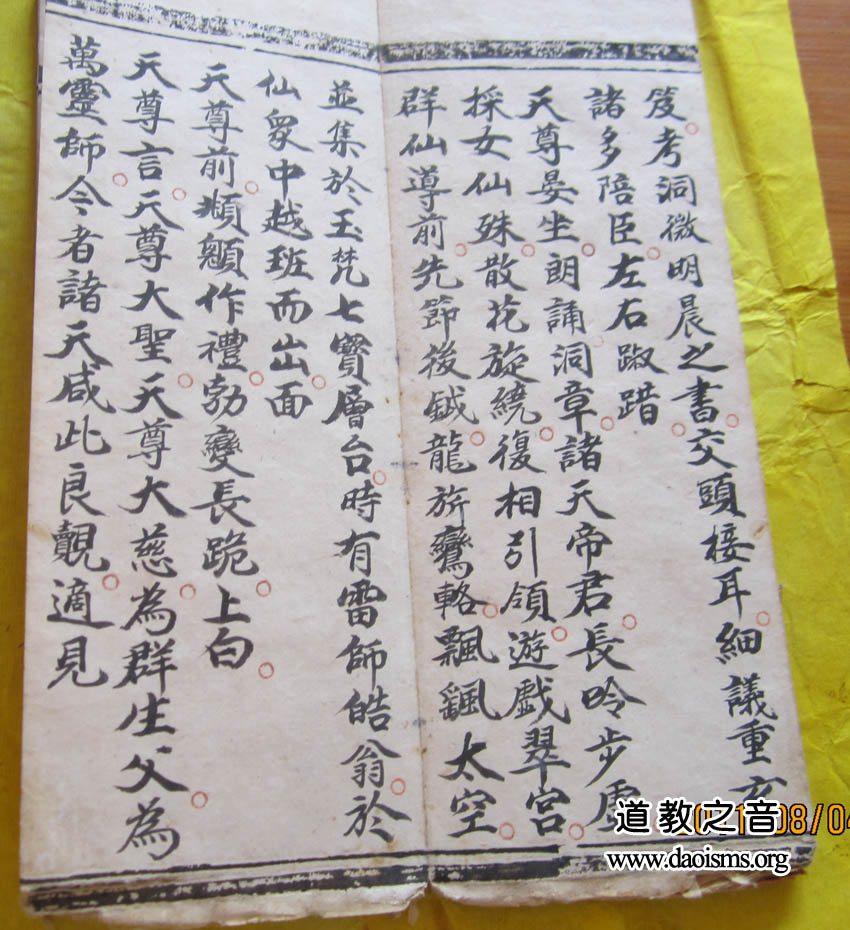 笈考洞微明晨之書交頭接耳細議重玄
諸多陪臣左右踧踖
天尊晏坐朗誦洞章諸天帝君長吟步虛
採女仙殊散花旋繞復相引領遊戱翠宮
群仙導前先節後鉞龍旂鸞輅飄飄太空
並集於玉梵七寳層台時有雷師皓翁於
仙衆中越班而出面
天尊前頫顖作禮勃變長跪上白
天尊言天尊大聖天尊大慈為群生父為
萬靈師今者諸天咸此良覿適見
道教之音
www.daoisms.org